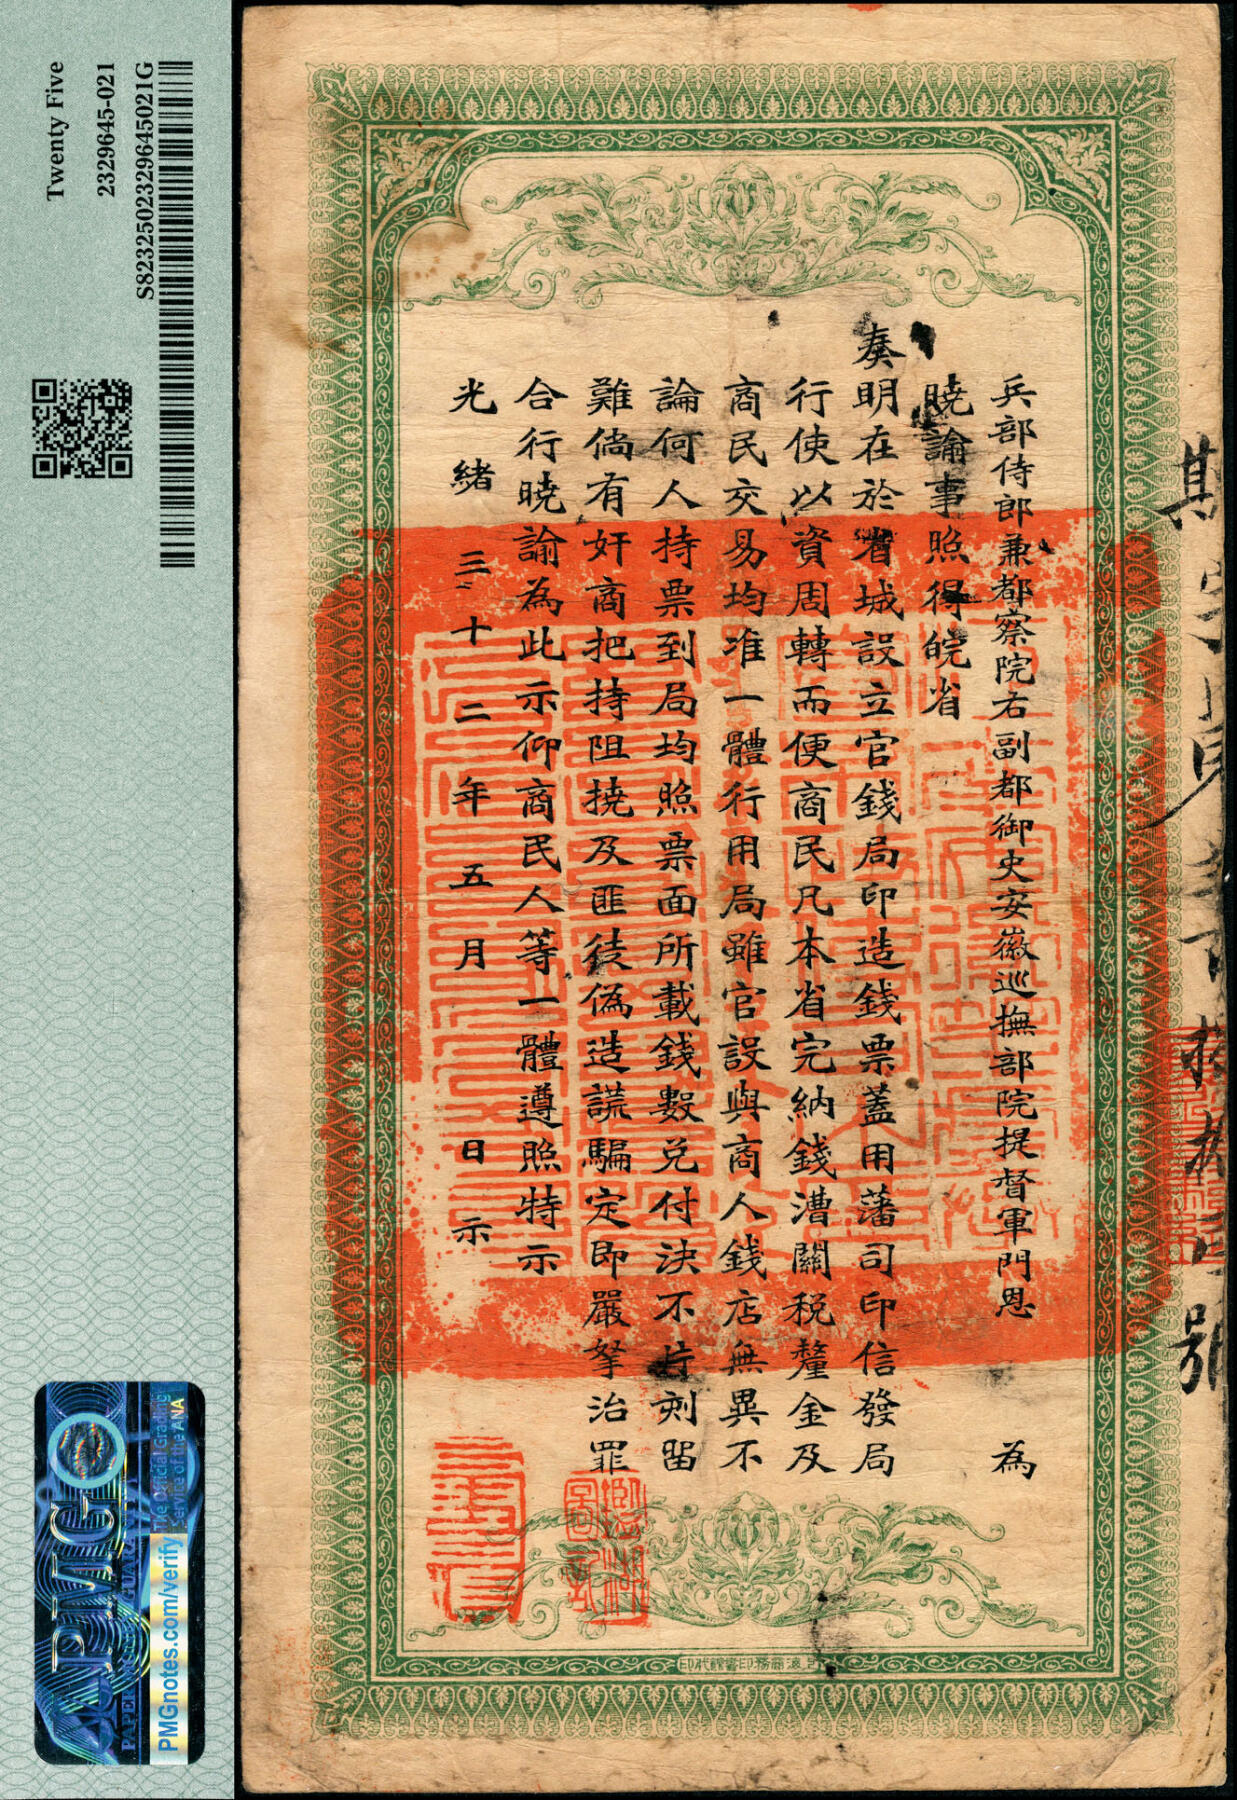 兵部侍郎兼都察院右副都御史安徽巡撫部院提督軍門恩 為
曉諭事照得皖省
奏明在於省城設立官錢局印造錢票蓋用藩司印信發局
行使以資周轉而便商民凡本省完納錢漕關稅釐金及
商民交易均准一體行用局雖官設與商人錢店無異不
論何人持票到局均照票面所載錢數兌付決不片刻留
難倘有奸商把持阻撓及匪徒偽造謊騙定即嚴拏治罪
合行曉諭為此示仰商民人等一體遵照特示
光緒三十二年五月 日示
號
Twenty Five
2329645-021
S82325023296450​21G
PMG
PMGnotes.com/verify
The Official Grading
Service of the ANA